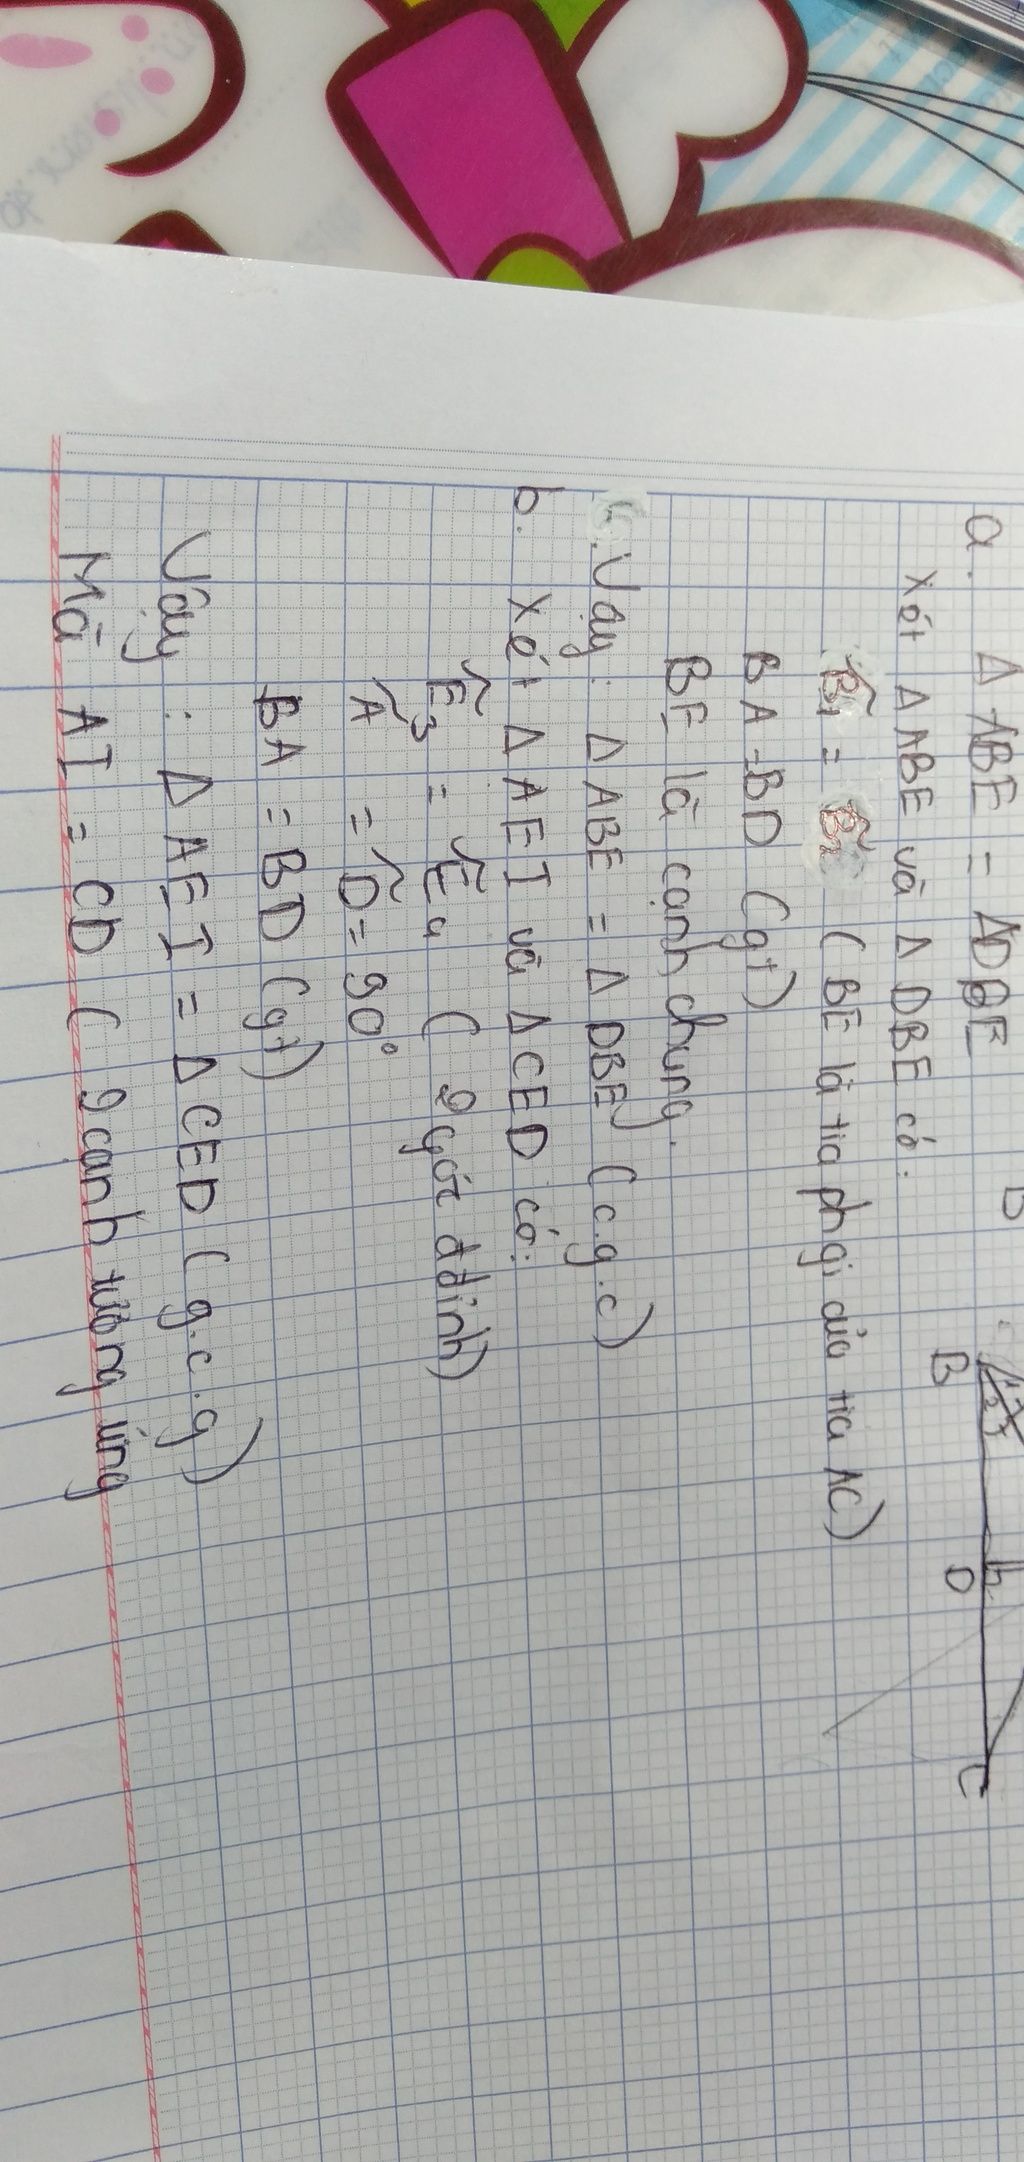 a. Δ ABE = ΔDBE
Xét Δ ABE và Δ DBE có:
B̂1 = B̂2 ( BE là tia phgi của tia AC)
BA = BD (gt)
BE là cạnh chung.
Vậy: Δ ABE = Δ DBE (c.g.c)
b. Xét Δ AEI và Δ CED có:
Ê3 = Ê4 ( 2 góc đ đỉnh)
Â = D̂ = 90°
BA = BD (gt)
Vậy: Δ AEI = Δ CED ( g.c.g)
Mà AI = CD ( 2 cạnh tương ứng
B
D
C